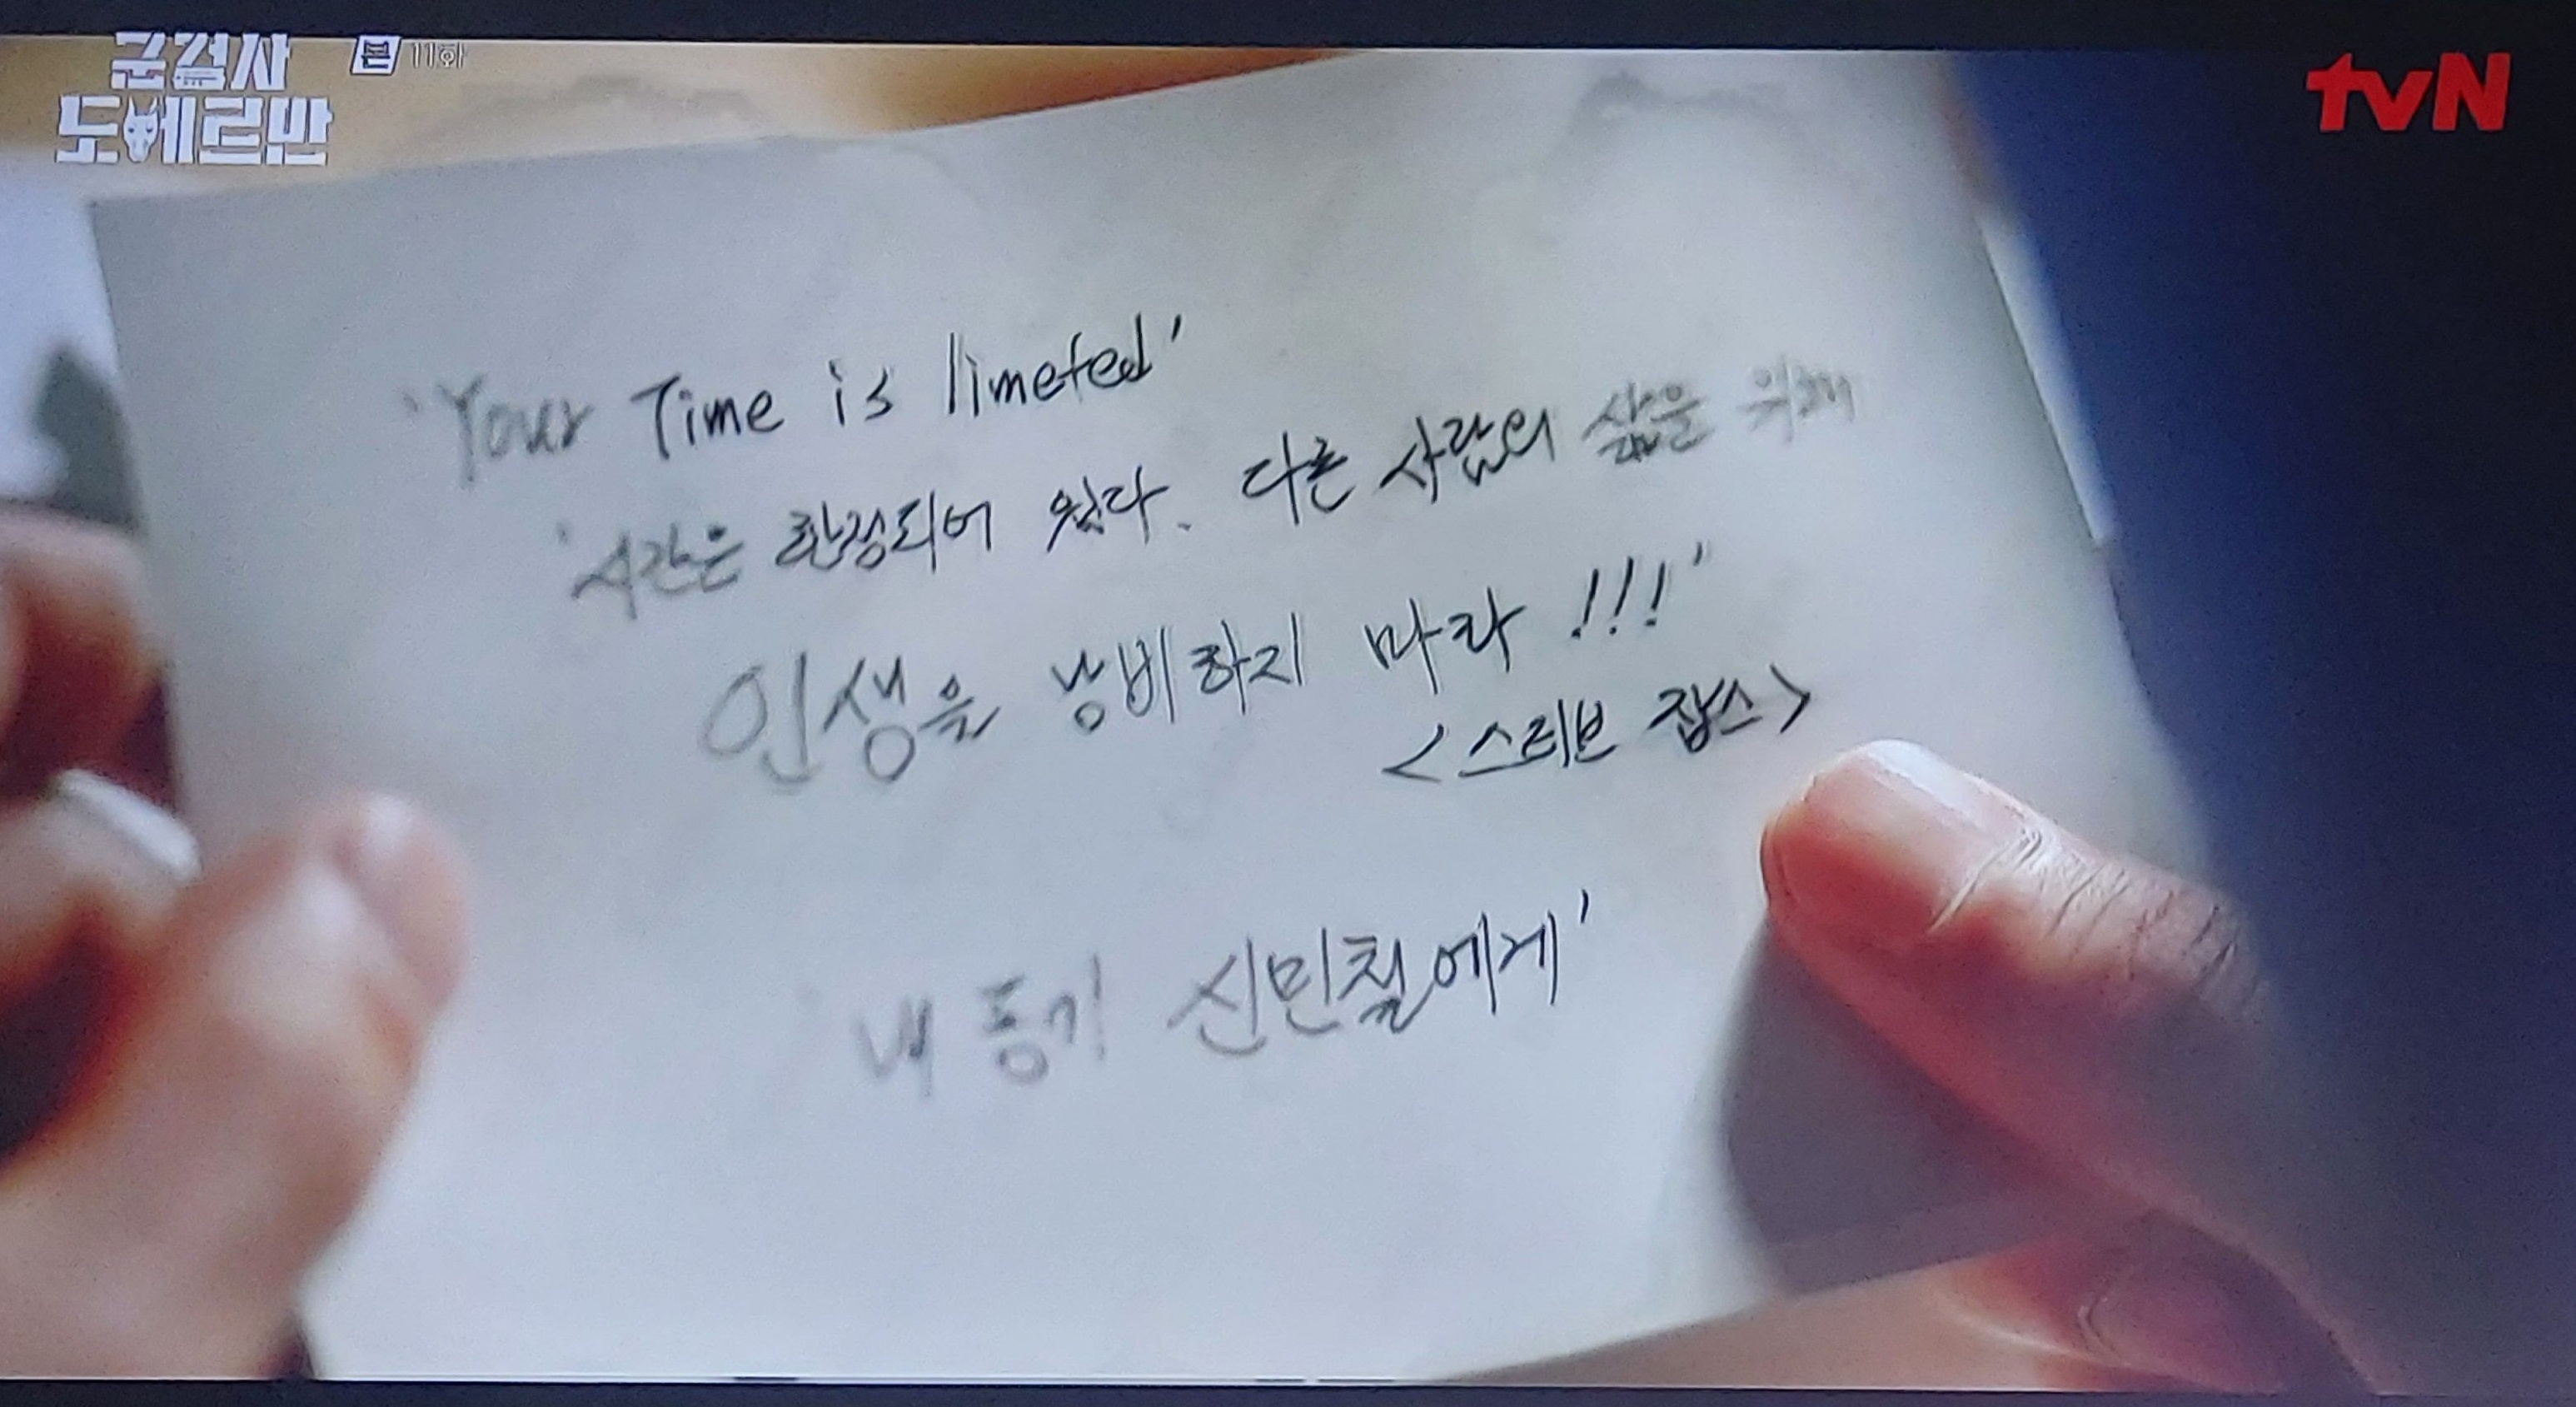 군검사 본 11화
도베르만
tvN
'Your Time is limeted'
'시간은 한정되어 있다. 다른 사람의 삶을 위해
인생을 낭비하지 마라!!!'
<스티브 잡스>
'내 동기 신민철에게'